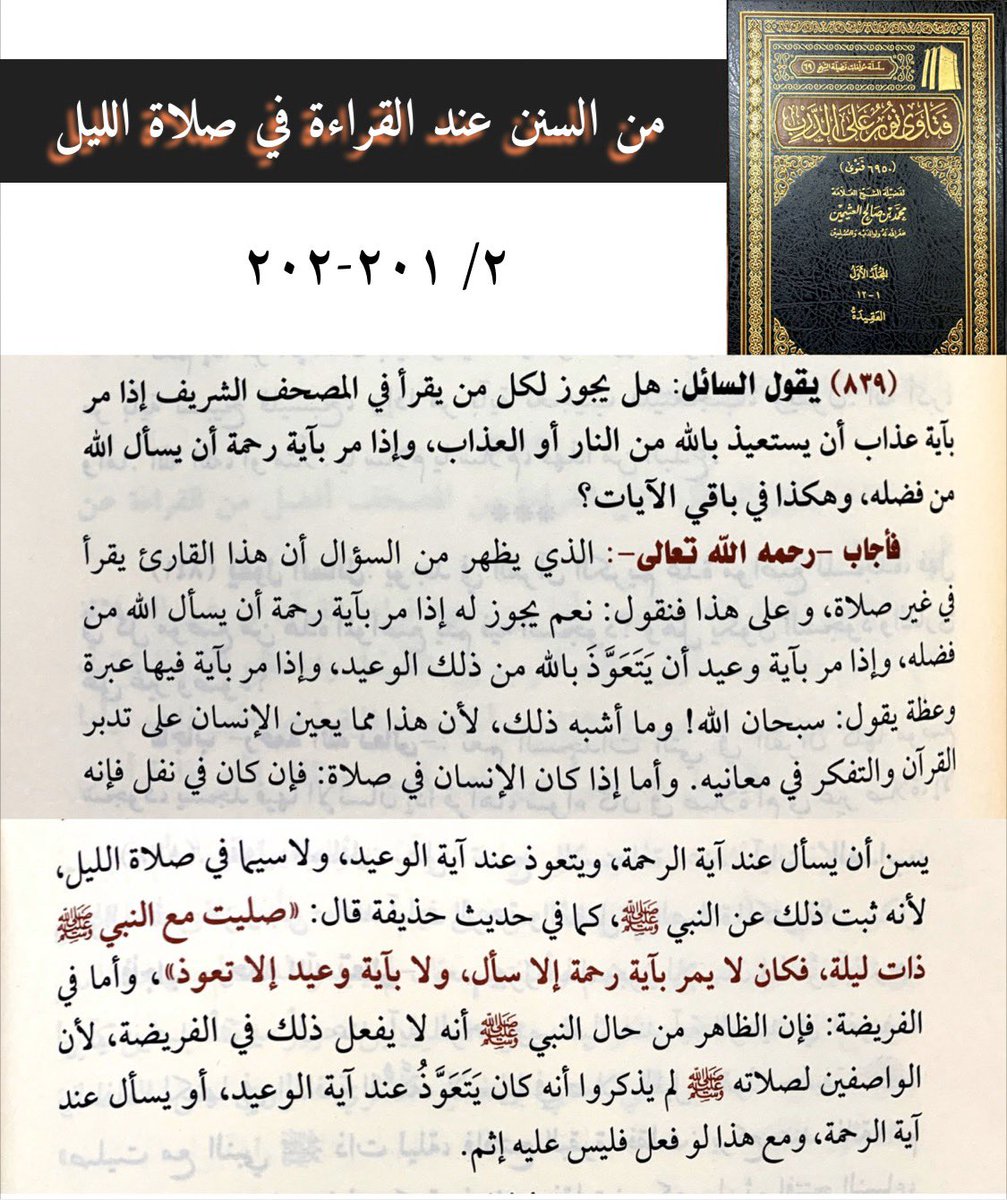 من السنن عند القراءة في صلاة الليل
٢/ ٢٠١-٢٠٢
سلسلة مؤلفات فضيلة الشيخ (٦٩)
فتاوى نور على الدرب
(٦٩٥٠ فتوى)
لفضيلة الشيخ العلامة
محمد بن صالح العثيمين
غفر الله له ولوالديه وللمسلمين
المجلد الأول
١-١٢
العقيدة
(٨٣٩) يقول السائل: هل يجوز لكل من يقرأ في المصحف الشريف إذا مر
بآية عذاب أن يستعيذ بالله من النار أو العذاب، وإذا مر بآية رحمة أن يسأل الله
من فضله، وهكذا في باقي الآيات؟
فأجاب -رحمه الله تعالى-: الذي يظهر من السؤال أن هذا القارئ يقرأ
في غير صلاة، و على هذا فنقول: نعم يجوز له إذا مر بآية رحمة أن يسأل الله من
فضله، وإذا مر بآية وعيد أن يَتَعَوَّذَ بالله من ذلك الوعيد، وإذا مر بآية فيها عبرة
وعظة يقول: سبحان الله! وما أشبه ذلك، لأن هذا مما يعين الإنسان على تدبر
القرآن والتفكر في معانيه. وأما إذا كان الإنسان في صلاة: فإن كان في نفل فإنه
يسن أن يسأل عند آية الرحمة، ويتعوذ عند آية الوعيد، ولاسيما في صلاة الليل،
لأنه ثبت ذلك عن النبي ﷺ، كما في حديث حذيفة قال: «صليت مع النبي ﷺ
ذات ليلة، فكان لا يمر بآية رحمة إلا سأل، ولا بآية وعيد إلا تعوذ»، وأما في
الفريضة: فإن الظاهر من حال النبي ﷺ أنه لا يفعل ذلك في الفريضة، لأن
الواصفين لصلاته ﷺ لم يذكروا أنه كان يَتَعَوَّذُ عند آية الوعيد، أو يسأل عند
آية الرحمة، ومع هذا لو فعل فليس عليه إثم.